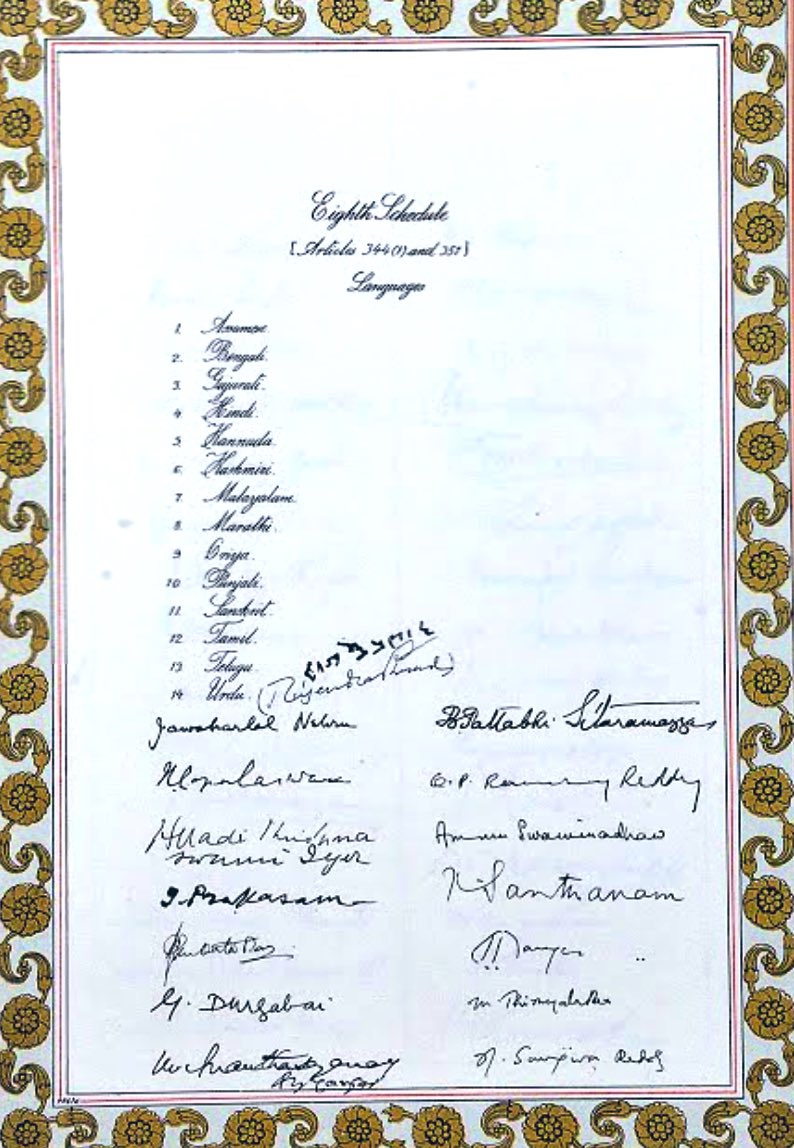 Eighth Schedule
[Articles 344(1) and 351]
Languages
1. Assamese.
2. Bengali.
3. Gujarati.
4. Hindi.
5. Kannada.
6. Kashmiri.
7. Malayalam.
8. Marathi.
9. Oriya.
10. Punjabi.
11. Sanskrit.
12. Tamil.
13. Telugu.
14. Urdu.
(Rajendra Prasad)
Jawaharlal Nehru
B. Pattabhi Sitaramayya
O. P. Reddy
Alladi Krishna
Swami Iyer
Ammu Swaminadhan
T. Prakasam
K. Santhanam
G. Durgabai
M. Ananthasayanam
Ayyangar
N. Sanjiva Reddy